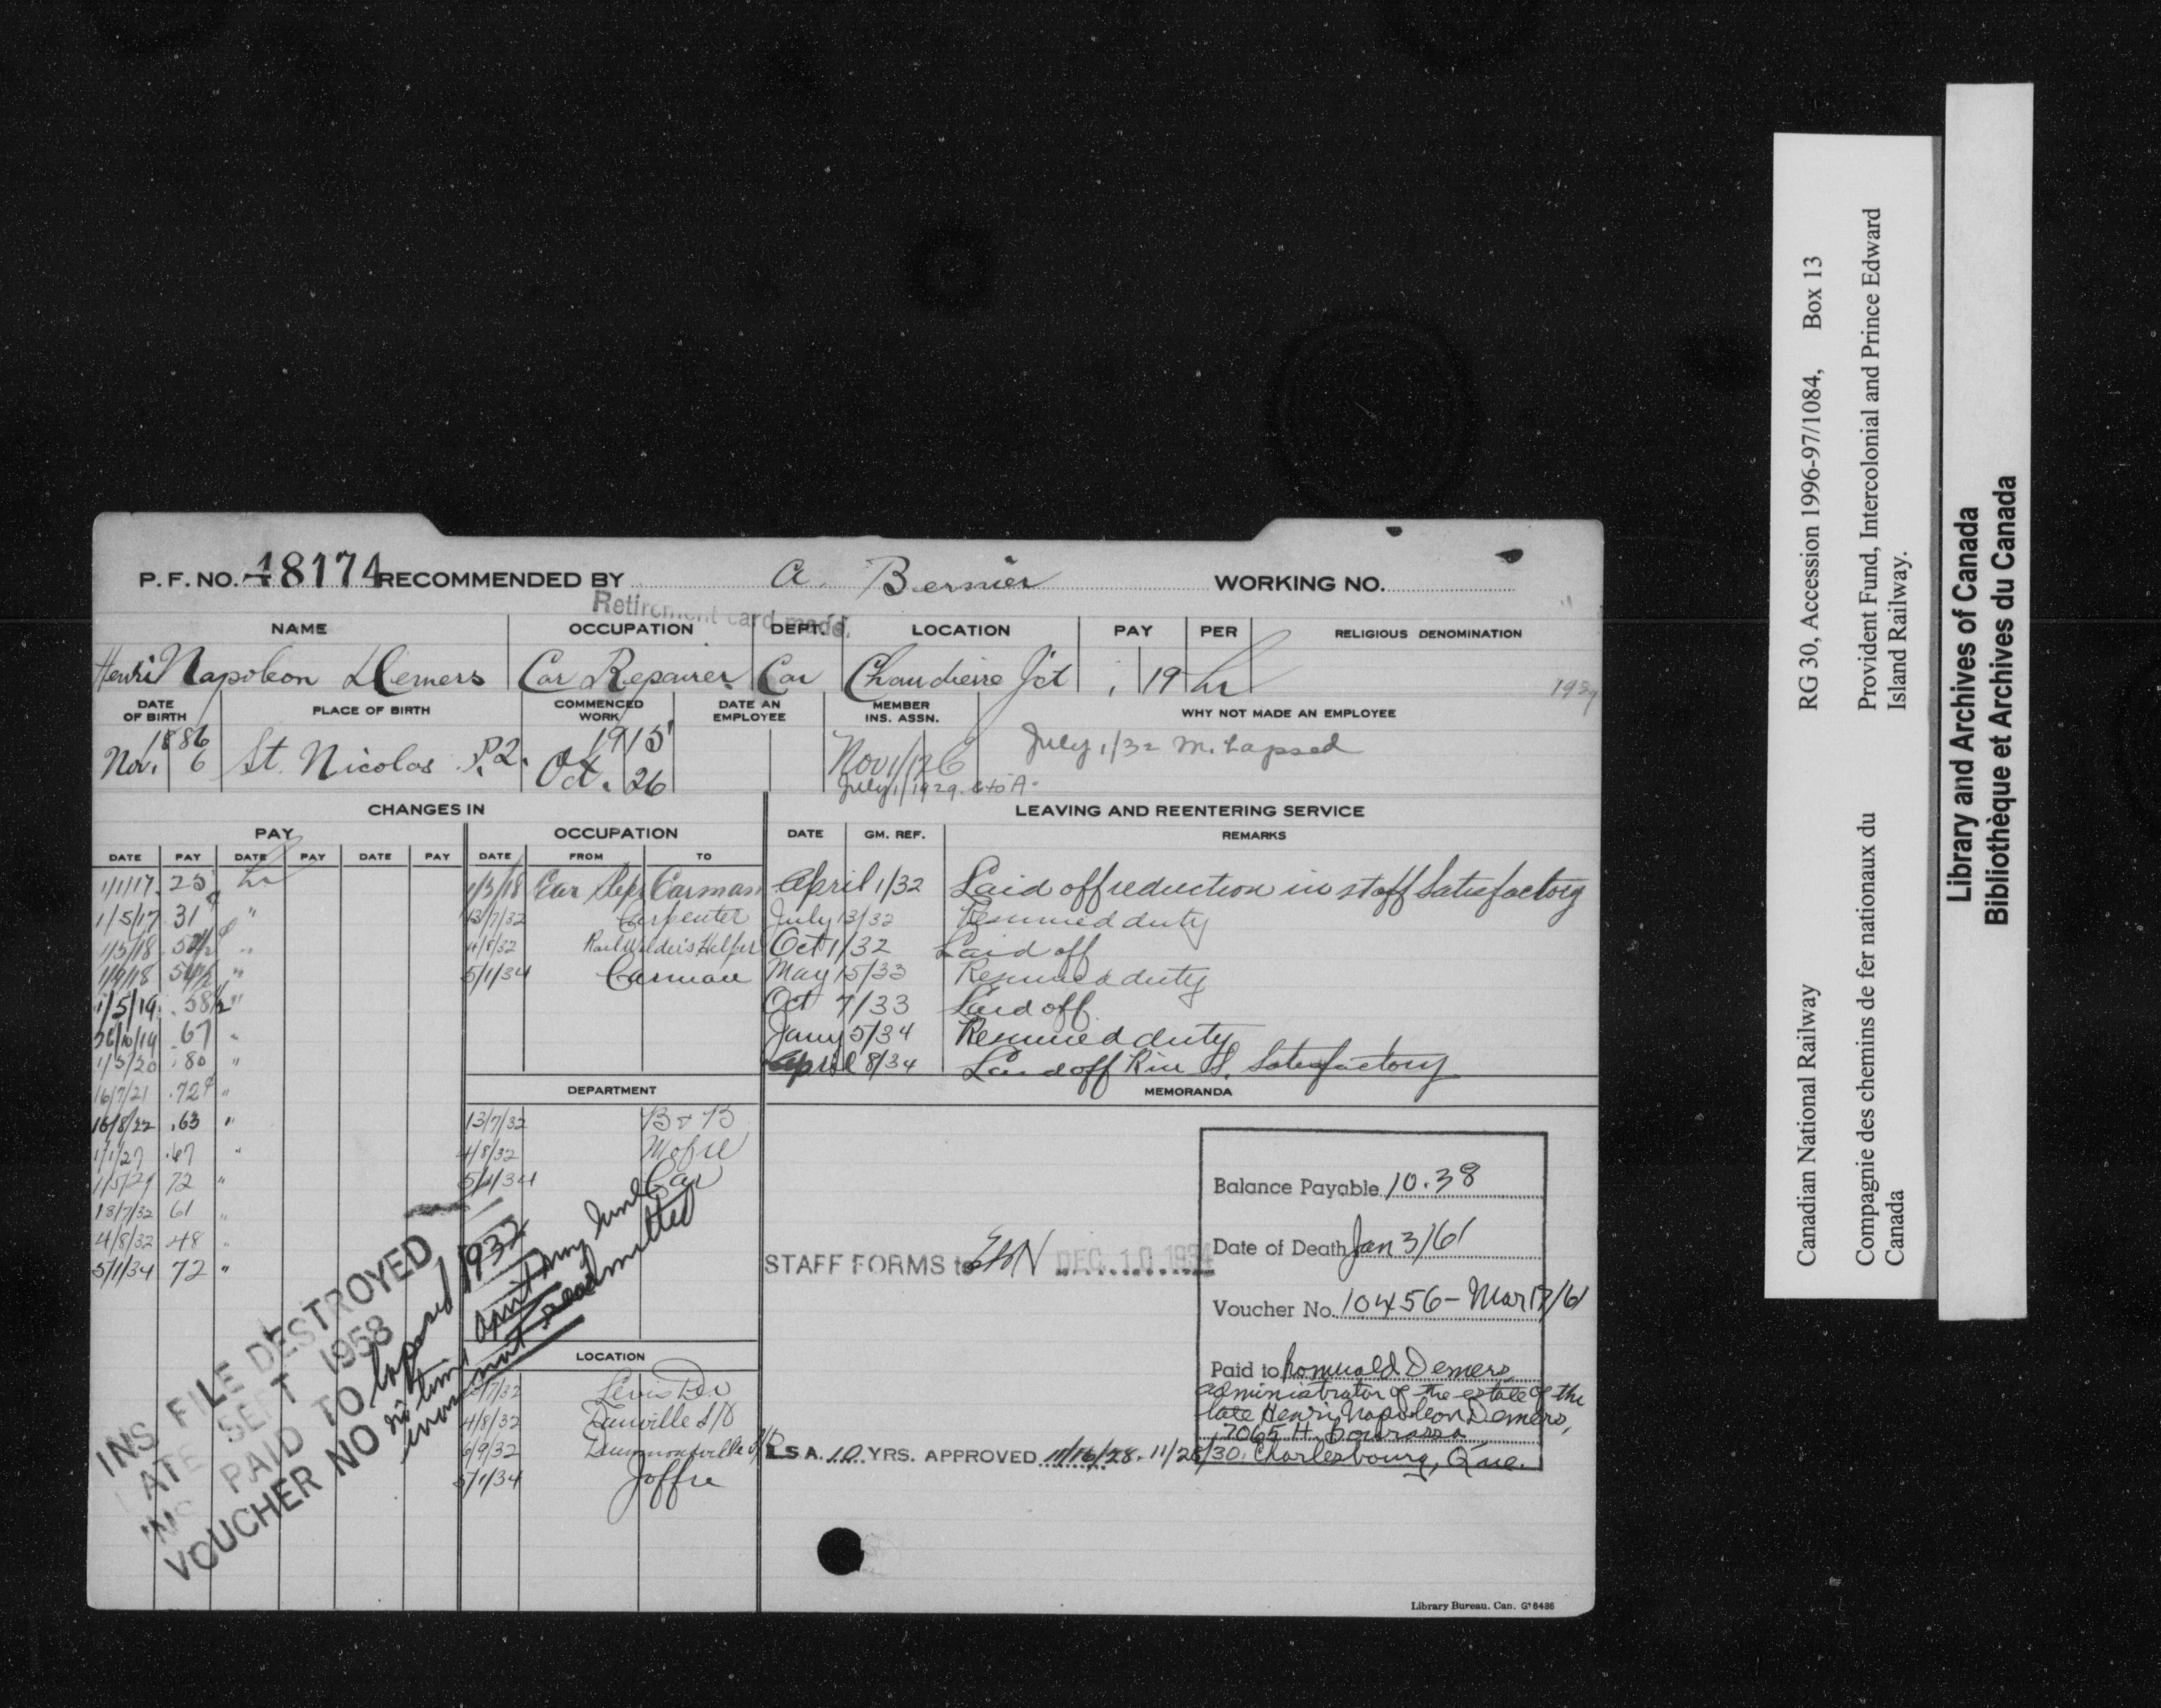 P. F. NO. 48174 RECOMMENDED BY A. Bernier WORKING NO.
Retirement card made.
NAME OCCUPATION DEPT. LOCATION PAY PER RELIGIOUS DENOMINATION
Henri Napoleon Demers Car Repairer Car Chaudiere Jct . 19 hr
DATE OF BIRTH PLACE OF BIRTH COMMENCED WORK DATE AN EMPLOYEE MEMBER INS. ASSN. WHY NOT MADE AN EMPLOYEE
1886 Nov. 6 St. Nicolas P.2. 1915 Oct. 26 Nov 1/26 July 1/32 M. Lapsed
July 1/1929. to A.
CHANGES IN
PAY
DATE PAY DATE PAY DATE PAY
1/1/17. 25 hr
1/5/17. 31 "
1/5/18 52½ "
1/9/18 54½ "
1/5/19. .58½ "
26/10/19 .67 "
1/5/20 .80 "
16/7/21 .72 "
16/8/22 .63 "
1/1/27 .67 "
1/5/29 72 "
13/7/32 61 "
4/8/32 48 "
5/1/34 72 "
OCCUPATION
DATE FROM TO
1/3/18 Car Rep. Carman
13/7/32 Carpenter
4/8/32 Railwelder's Helper
5/1/34 Carman
DEPARTMENT
13/7/32 B & B
4/8/32
5/1/34 Car
LOCATION
13/7/32 Levis Div
4/8/32
6/9/32 Drummondville
5/1/34 Joffre
INS FILE DESTROYED
DATE SEPT 1958
INS PAID TO lapsed 1932
VOUCHER NO no time April May June
not readmitted
LEAVING AND REENTERING SERVICE
DATE GM. REF. REMARKS
April 1/32 Laid off reduction in staff Satisfactory
July 13/32 Resumed duty
Oct 1/32 Laid off
May 15/33 Resumed duty
Oct 7/33 Laid off.
Jany 5/34 Resumed duty
April 8/34 Laid off Rin S. Satisfactory
MEMORANDA
STAFF FORMS to DEC 10 1934
L.S.A. 10 YRS. APPROVED 11/16/28. 11/28/30.
Balance Payable 10.38
Date of Death Jan 3/61
Voucher No. 10456 - Mar 17/61
Paid to Romuald Demers
administrator of the estate of the
late Henri Napoleon Demers,
7065 H. Bourassa
Charlesbourg, Que.
Library Bureau. Can. G16486
Canadian National Railway RG 30, Accession 1996-97/1084, Box 13
Compagnie des chemins de fer nationaux du Canada
Provident Fund, Intercolonial and Prince Edward Island Railway.
Library and Archives of Canada
Bibliothèque et Archives du Canada